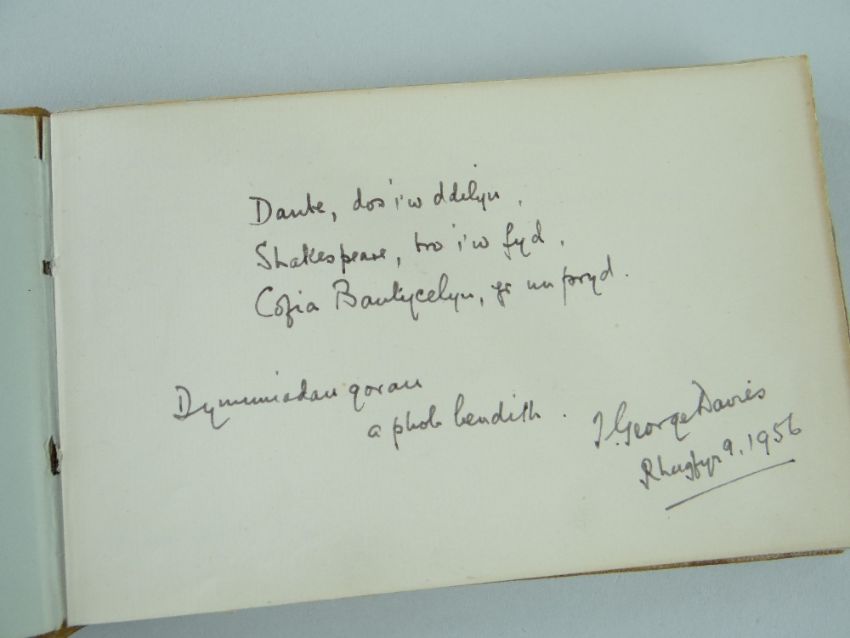 Dante, dos i'w ddilyn,
Shakespeare, tro i'w fyd,
Cofia Bantycelyn, yr un pryd.
Dymuniadau gorau
a phob bendith.
J. George Davies
Rhagfyr 9. 1956